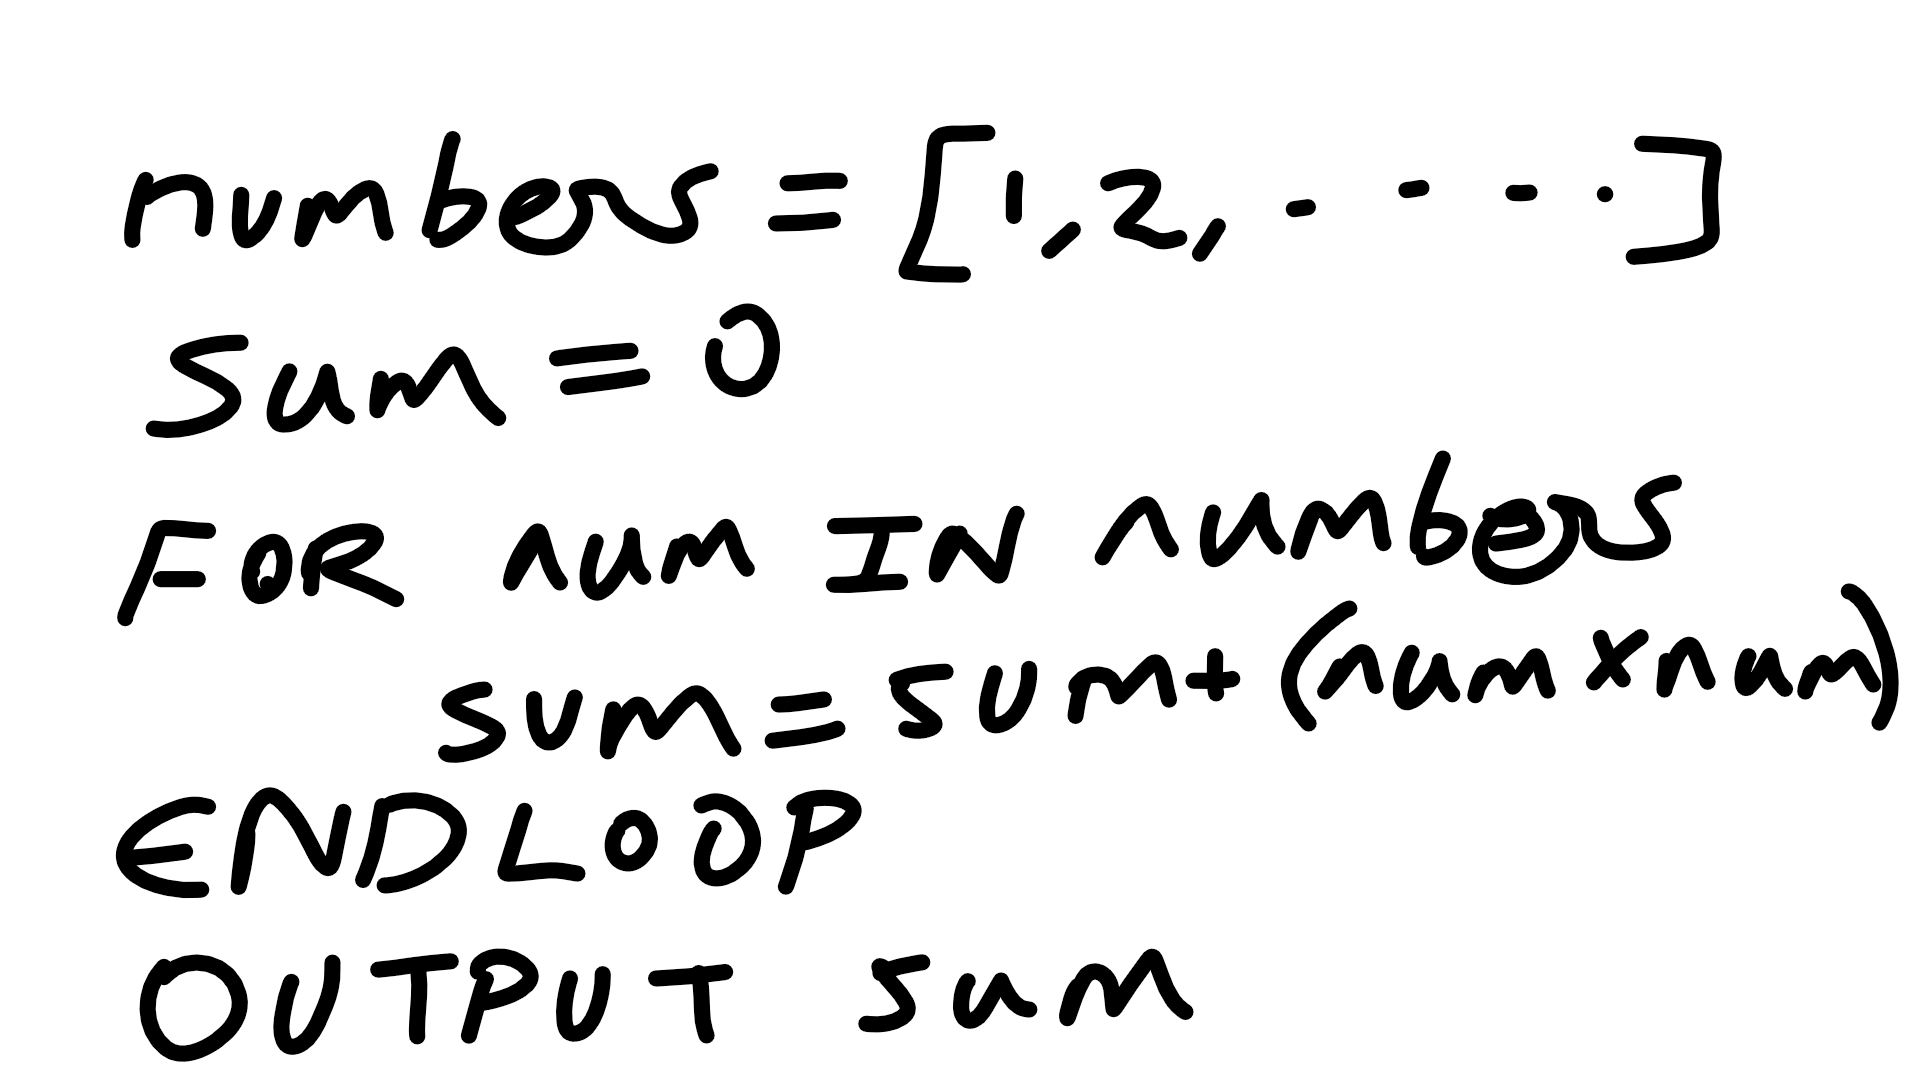 numbers = [1,2,- - - - .]
sum = 0
FOR num IN numbers
sum = sum + (num x num)
END LOOP
OUTPUT sum